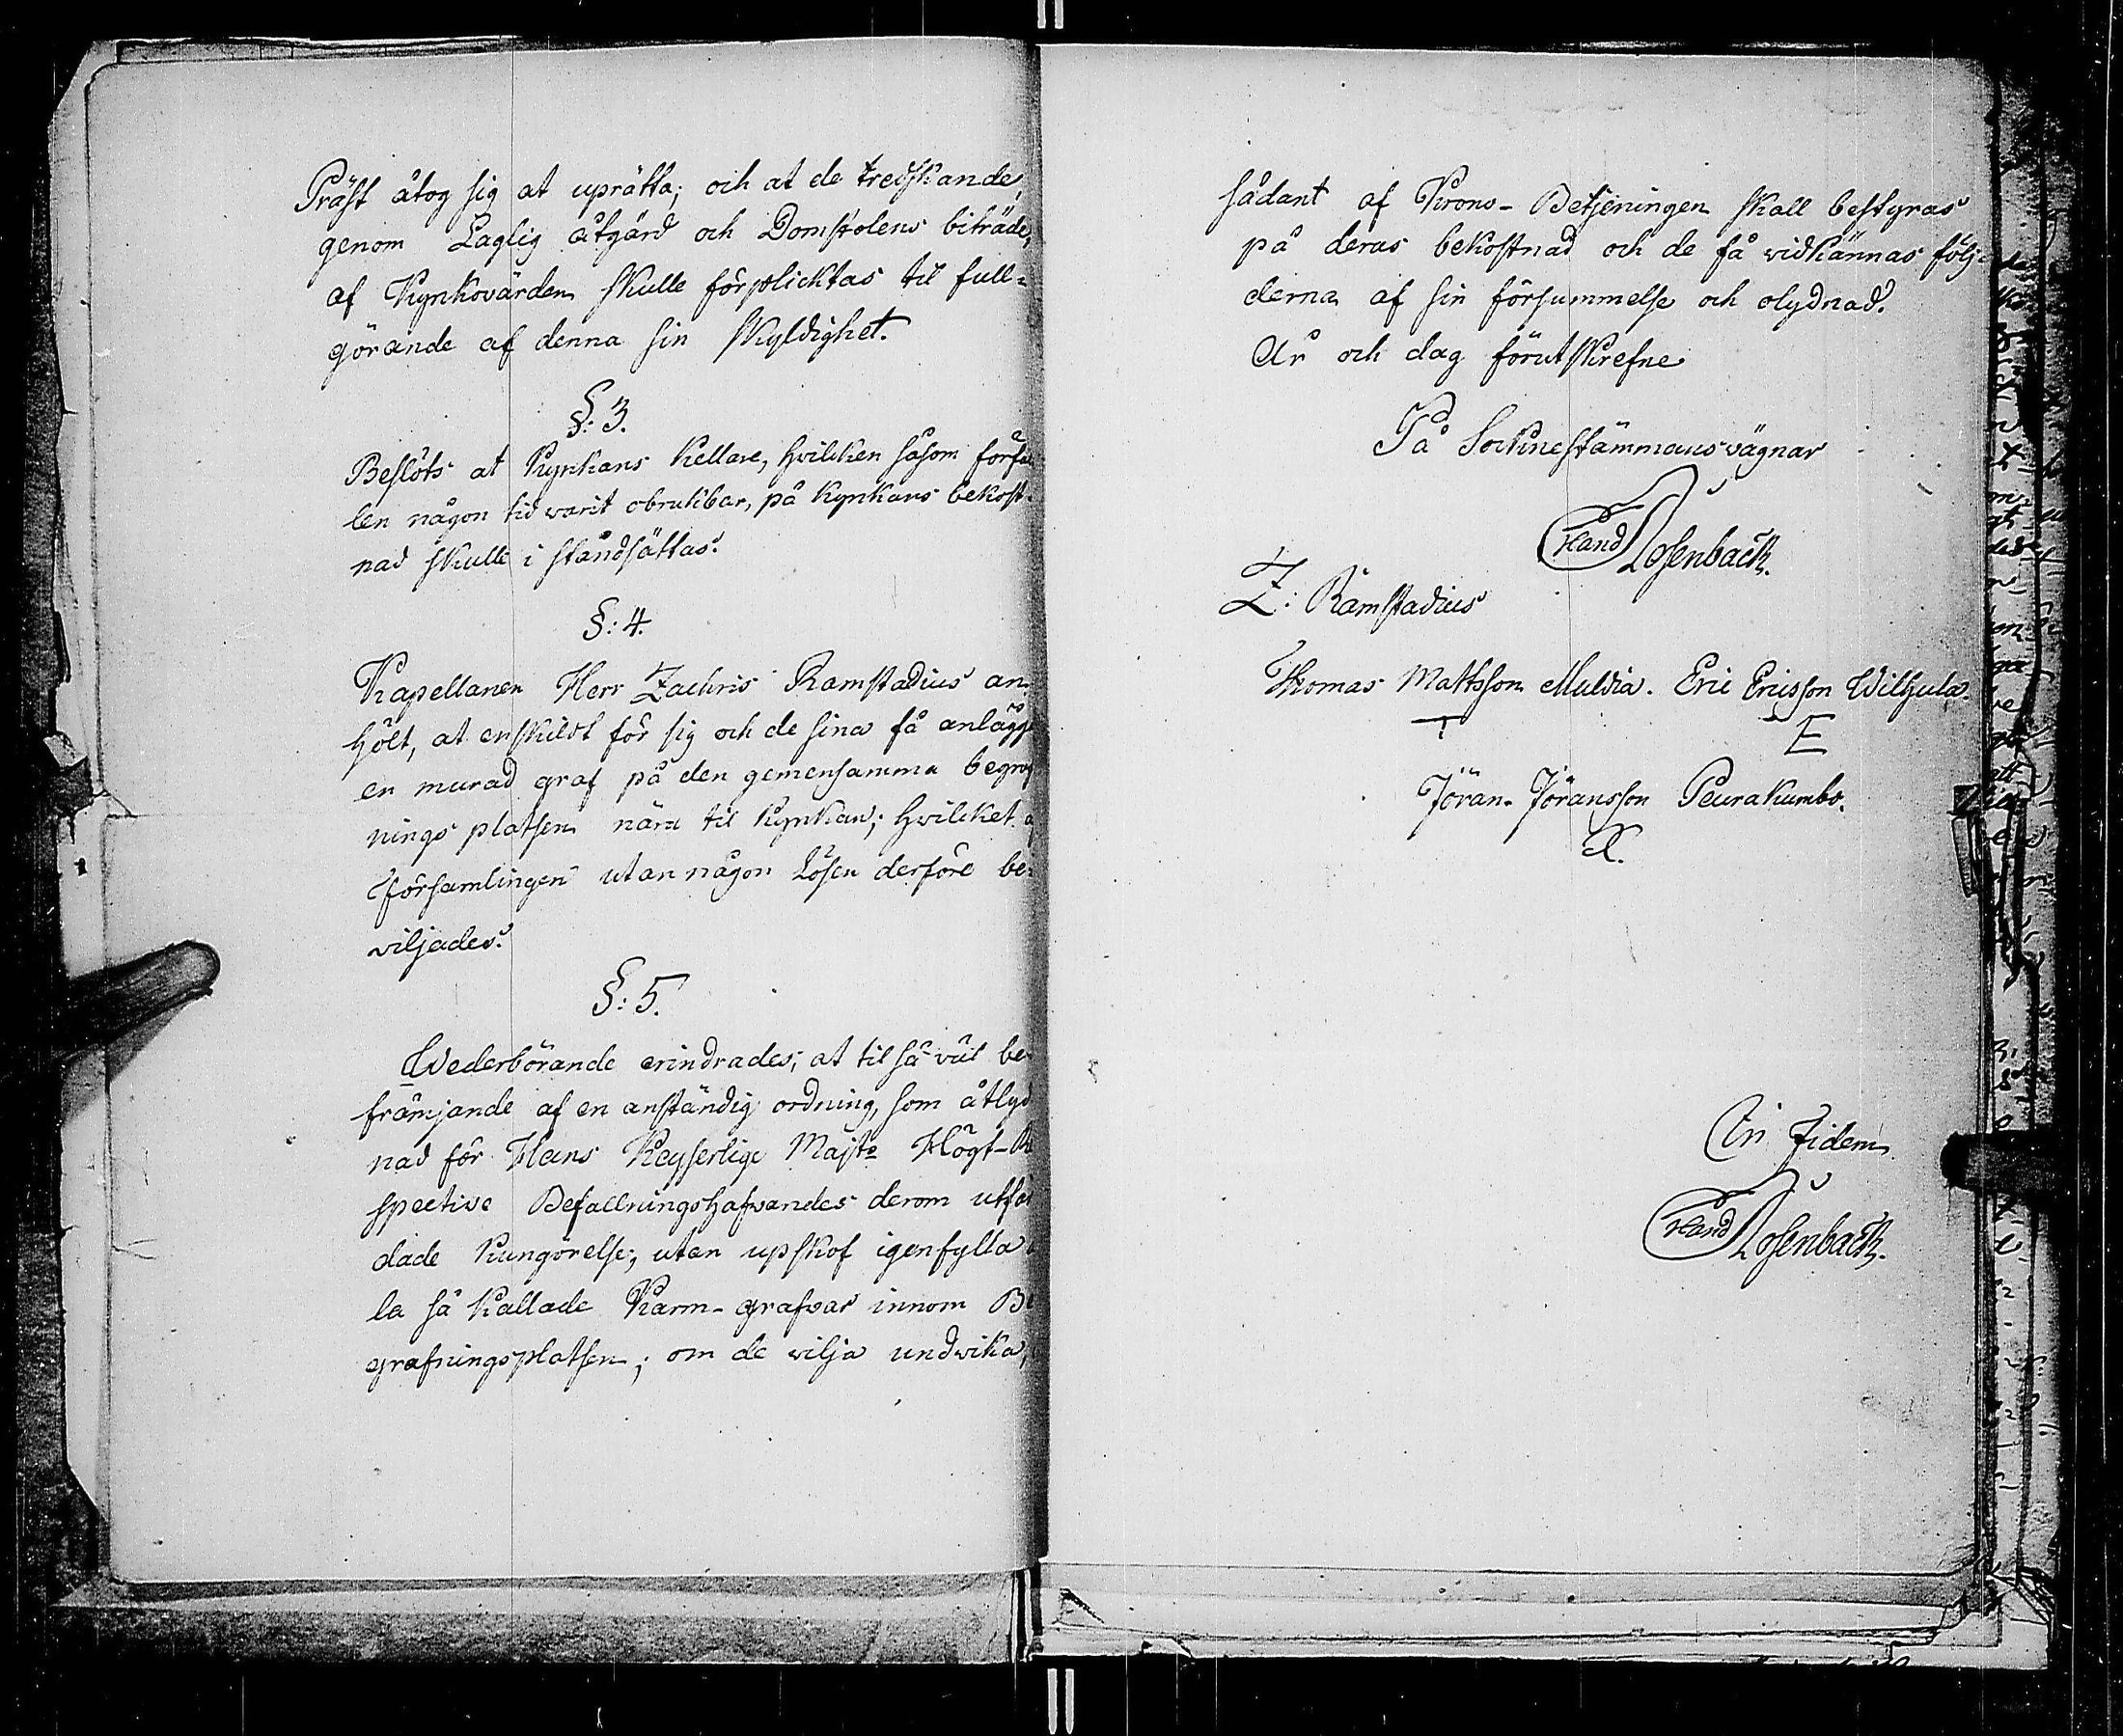 Präst åtog sig at uprätta; och at de tredskande
genom Laglig åtgärd och Domstolens biträde,
af Kyrkovärden skulle förplicktas til full=
görande af denna sin skyldighet.
§: 3.
Beslöts at Kyrkans Kellare, hvilcken såsom förfal
len någon tid warit obrukbar, på kyrkans bekost-
nad skulle i ståndsättas.
§: 4.
Kapellanen Herr Zachris Ramstadius an
hölt, at enskildt för sig och de sina få anlägga
en murad graf på den gemensamma begraf
nings platsen nära til kyrkan; hvilcket a
församlingen utan någon Lösen derföre be=
viljades.
§: 5.
Wederbörande erindrades; at til så väl be-
främjande af en anständig ordning, som åtlyd
nad för Hans Keyserlige Majsts Högt-Re
spective Befallningshafvandes derom utfär
dade Kungörelse; utan upskof igenfylla al
la så kallade Karm-grafvar innom Be
grafningsplatsen; om de vilja undwika,
sådant af Krono-Betjeningen skall bestyras
på deras bekostnad och de få widkännas följ-
derna af sin försummelse och olydnad.
År och dag förutskrefne
På Socknestämmans vägnar
Hand Rosenback.
Z: Ramstadius
Thomas Mattsson Muldia. Eric Ericsson Wilhula.
T E
Jöran Jöransson Peurakumbo.
In Fidem
Hand Rosenback.